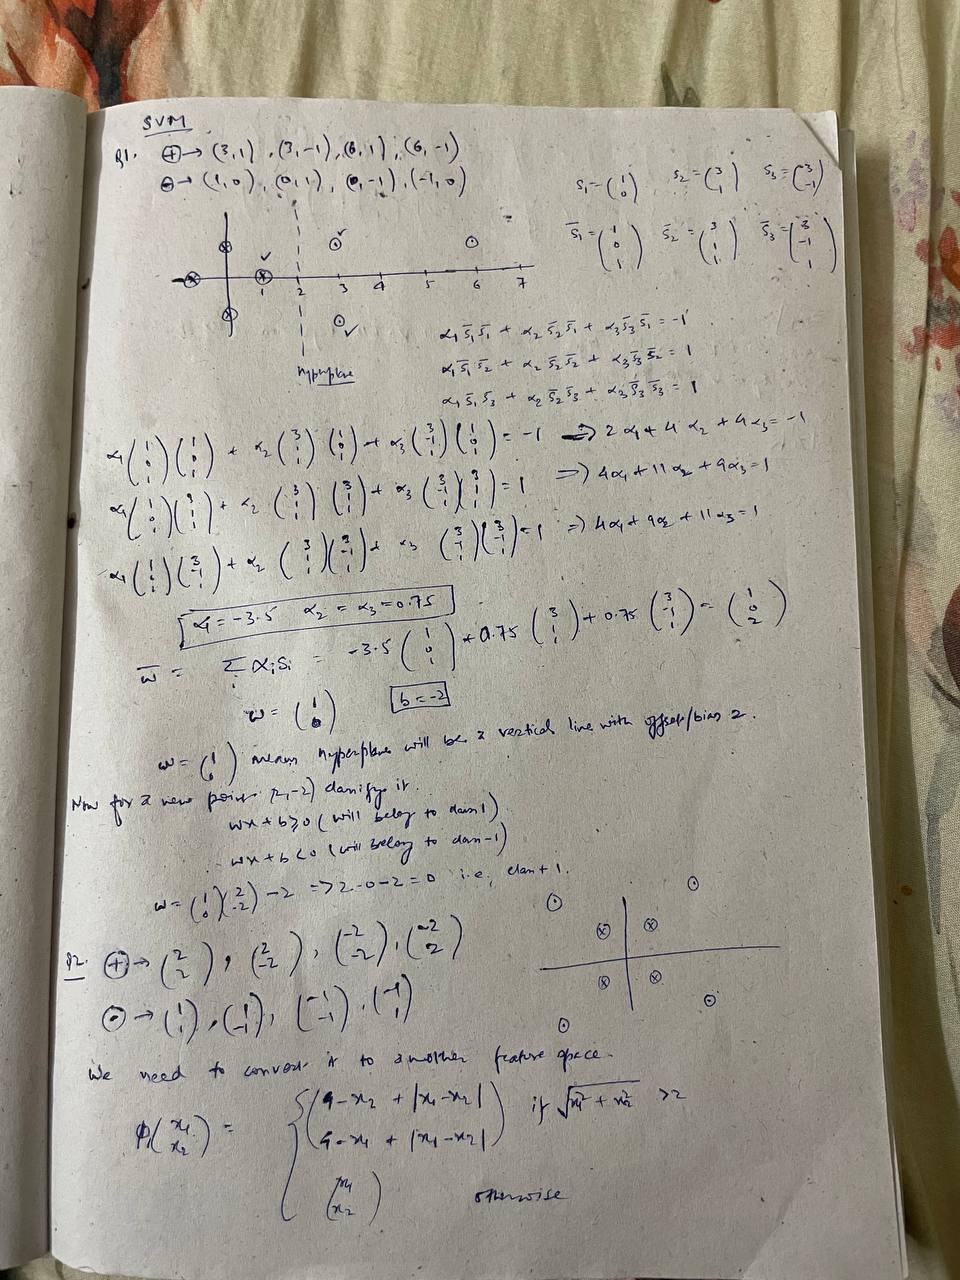 SVM
Q1. ⊕→ (3,1), (3,-1), (6,1), (6,-1)
⊖→ (1,0), (0,1), (0,-1), (-1,0)
S₁=(1 0) S₂=(3 1) S₃=(3 -1)
S̄₁=(1 0 1) S̄₂=(3 1 1) S̄₃=(3 -1 1)
1 2 3 4 5 6 7
hyperplane
α₁S̄₁S̄₁ + α₂S̄₂S̄₁ + α₃S̄₃S̄₁ = -1
α₁S̄₁S̄₂ + α₂S̄₂S̄₂ + α₃S̄₃S̄₂ = 1
α₁S̄₁S̄₃ + α₂S̄₂S̄₃ + α₃S̄₃S̄₃ = 1
α₁(1 0 1)(1 0 1) + α₂(3 1 1)(1 0 1) + α₃(3 -1 1)(1 0 1) = -1 => 2α₁ + 4α₂ + 4α₃ = -1
α₁(1 0 1)(3 1 1) + α₂(3 1 1)(3 1 1) + α₃(3 -1 1)(3 1 1) = 1 => 4α₁ + 11α₂ + 9α₃ = 1
α₁(1 0 1)(3 -1 1) + α₂(3 1 1)(3 -1 1) + α₃(3 -1 1)(3 -1 1) = 1 => 4α₁ + 9α₂ + 11α₃ = 1
α₁ = -3.5 α₂ = α₃ = 0.75
w̄ = Σ αᵢsᵢ = -3.5(1 0 1) + 0.75(3 1 1) + 0.75(3 -1 1) = (1 0 2)
w = (1 0) b = -2
w = (1 0) means hyperplane will be a vertical line with offset/bias 2.
Now for a new point (2,-2) classify it.
wx + b ≥ 0 (will belong to class 1)
wx + b < 0 (will belong to class -1)
w = (1 0)(2 -2) - 2 => 2-0-2 = 0 i.e., class +1.
Q2. ⊕→ (2 2), (2 -2), (-2 -2), (-2 2)
⊙→ (1 1), (1 -1), (-1 -1), (-1 1)
We need to convert it to another feature space.
φ₁(x₁ x₂) = { (4-x₂ + |x₁-x₂| 4-x₁ + |x₁-x₂|) if √(x₁² + x₂²) > 2
(x₁ x₂) otherwise